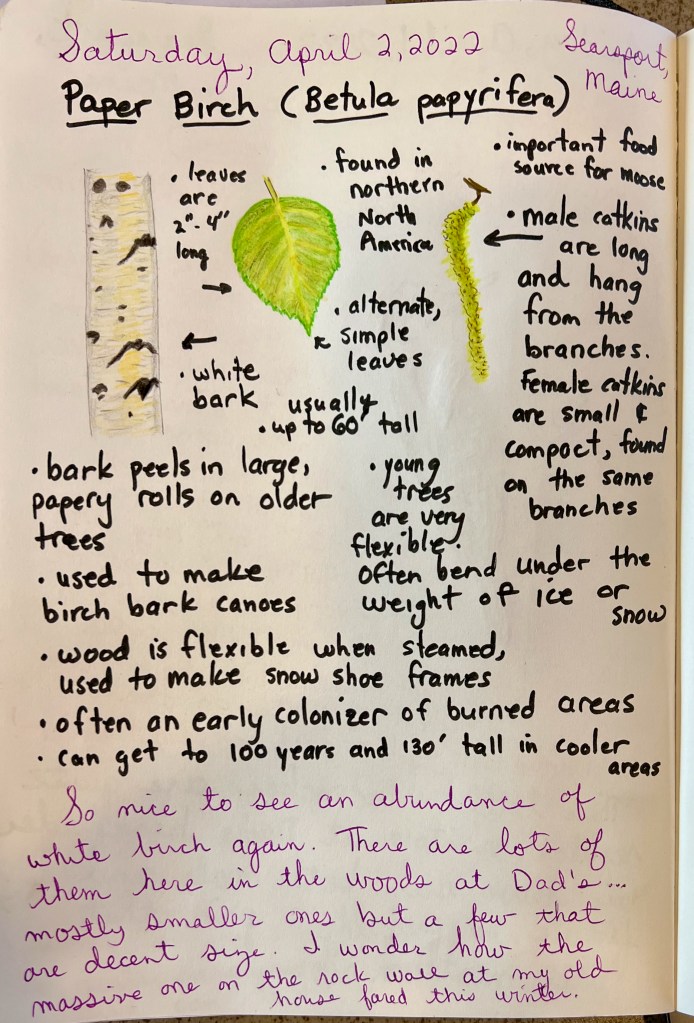 Saturday, April 2, 2022
Searsport,
Maine
Paper Birch (Betula papyrifera)
• leaves
are
2"-4"
long
• found in
northern
North
America
• important food
source for moose
• male catkins
are long
and hang
from the
branches.
Female catkins
are small &
compact, found
on the same
branches
• alternate,
simple
leaves
• white
bark
usually
• up to 60' tall
• bark peels in large,
papery rolls on older
trees
• young
trees
are very
flexible.
Often bend under the
weight of ice or
snow
• used to make
birch bark canoes
• wood is flexible when steamed,
used to make snow shoe frames
• often an early colonizer of burned areas
• can get to 100 years and 130' tall in cooler
areas
So nice to see an abundance of
white birch again. There are lots of
them here in the woods at Dad's...
mostly smaller ones but a few that
are decent size. I wonder how the
massive one on the rock wall at my old
house fared this winter.